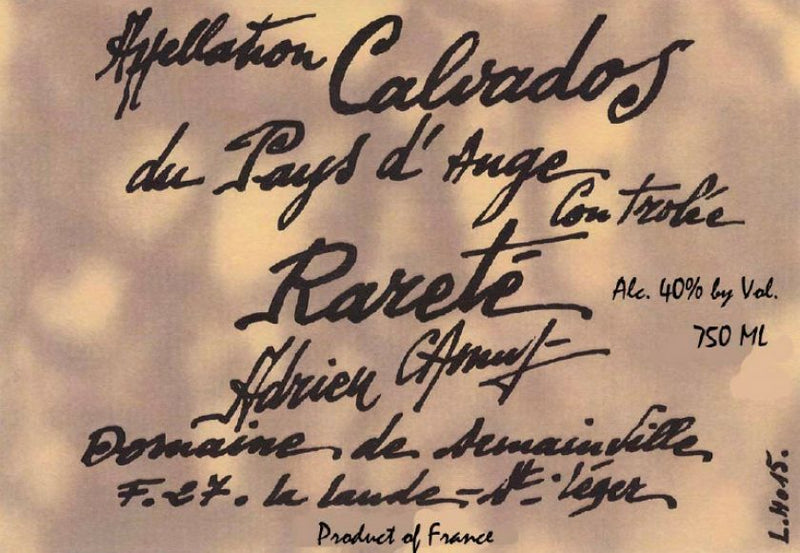 Appellation Calvados
du Pays d'Auge
Controlée
Rareté
Alc. 40% by Vol.
750 ML
Adrien Camut
Domaine de Semainville
F. 27. la Lande - St. Léger
Product of France